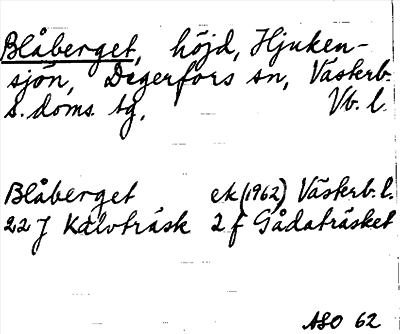 Blåberget, höjd, Hjuken-
sjön, Degerfors sn, Västerb.
s. doms. tg, Vb. l.
Blåberget ek (1962) Västerb. l.
22 J Kalvträsk 2 f Gådaträsket
ASO 62